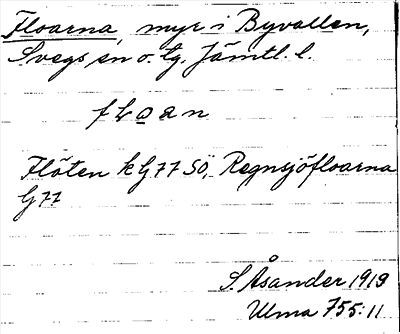 Floarna, myr i Byvallen,
Svegs sn o. tg. Jämtl. l.
Flöten k G77 SÖ, Regnsjöfloarna
G77
S. Åsander 1919
Ulma 755:11